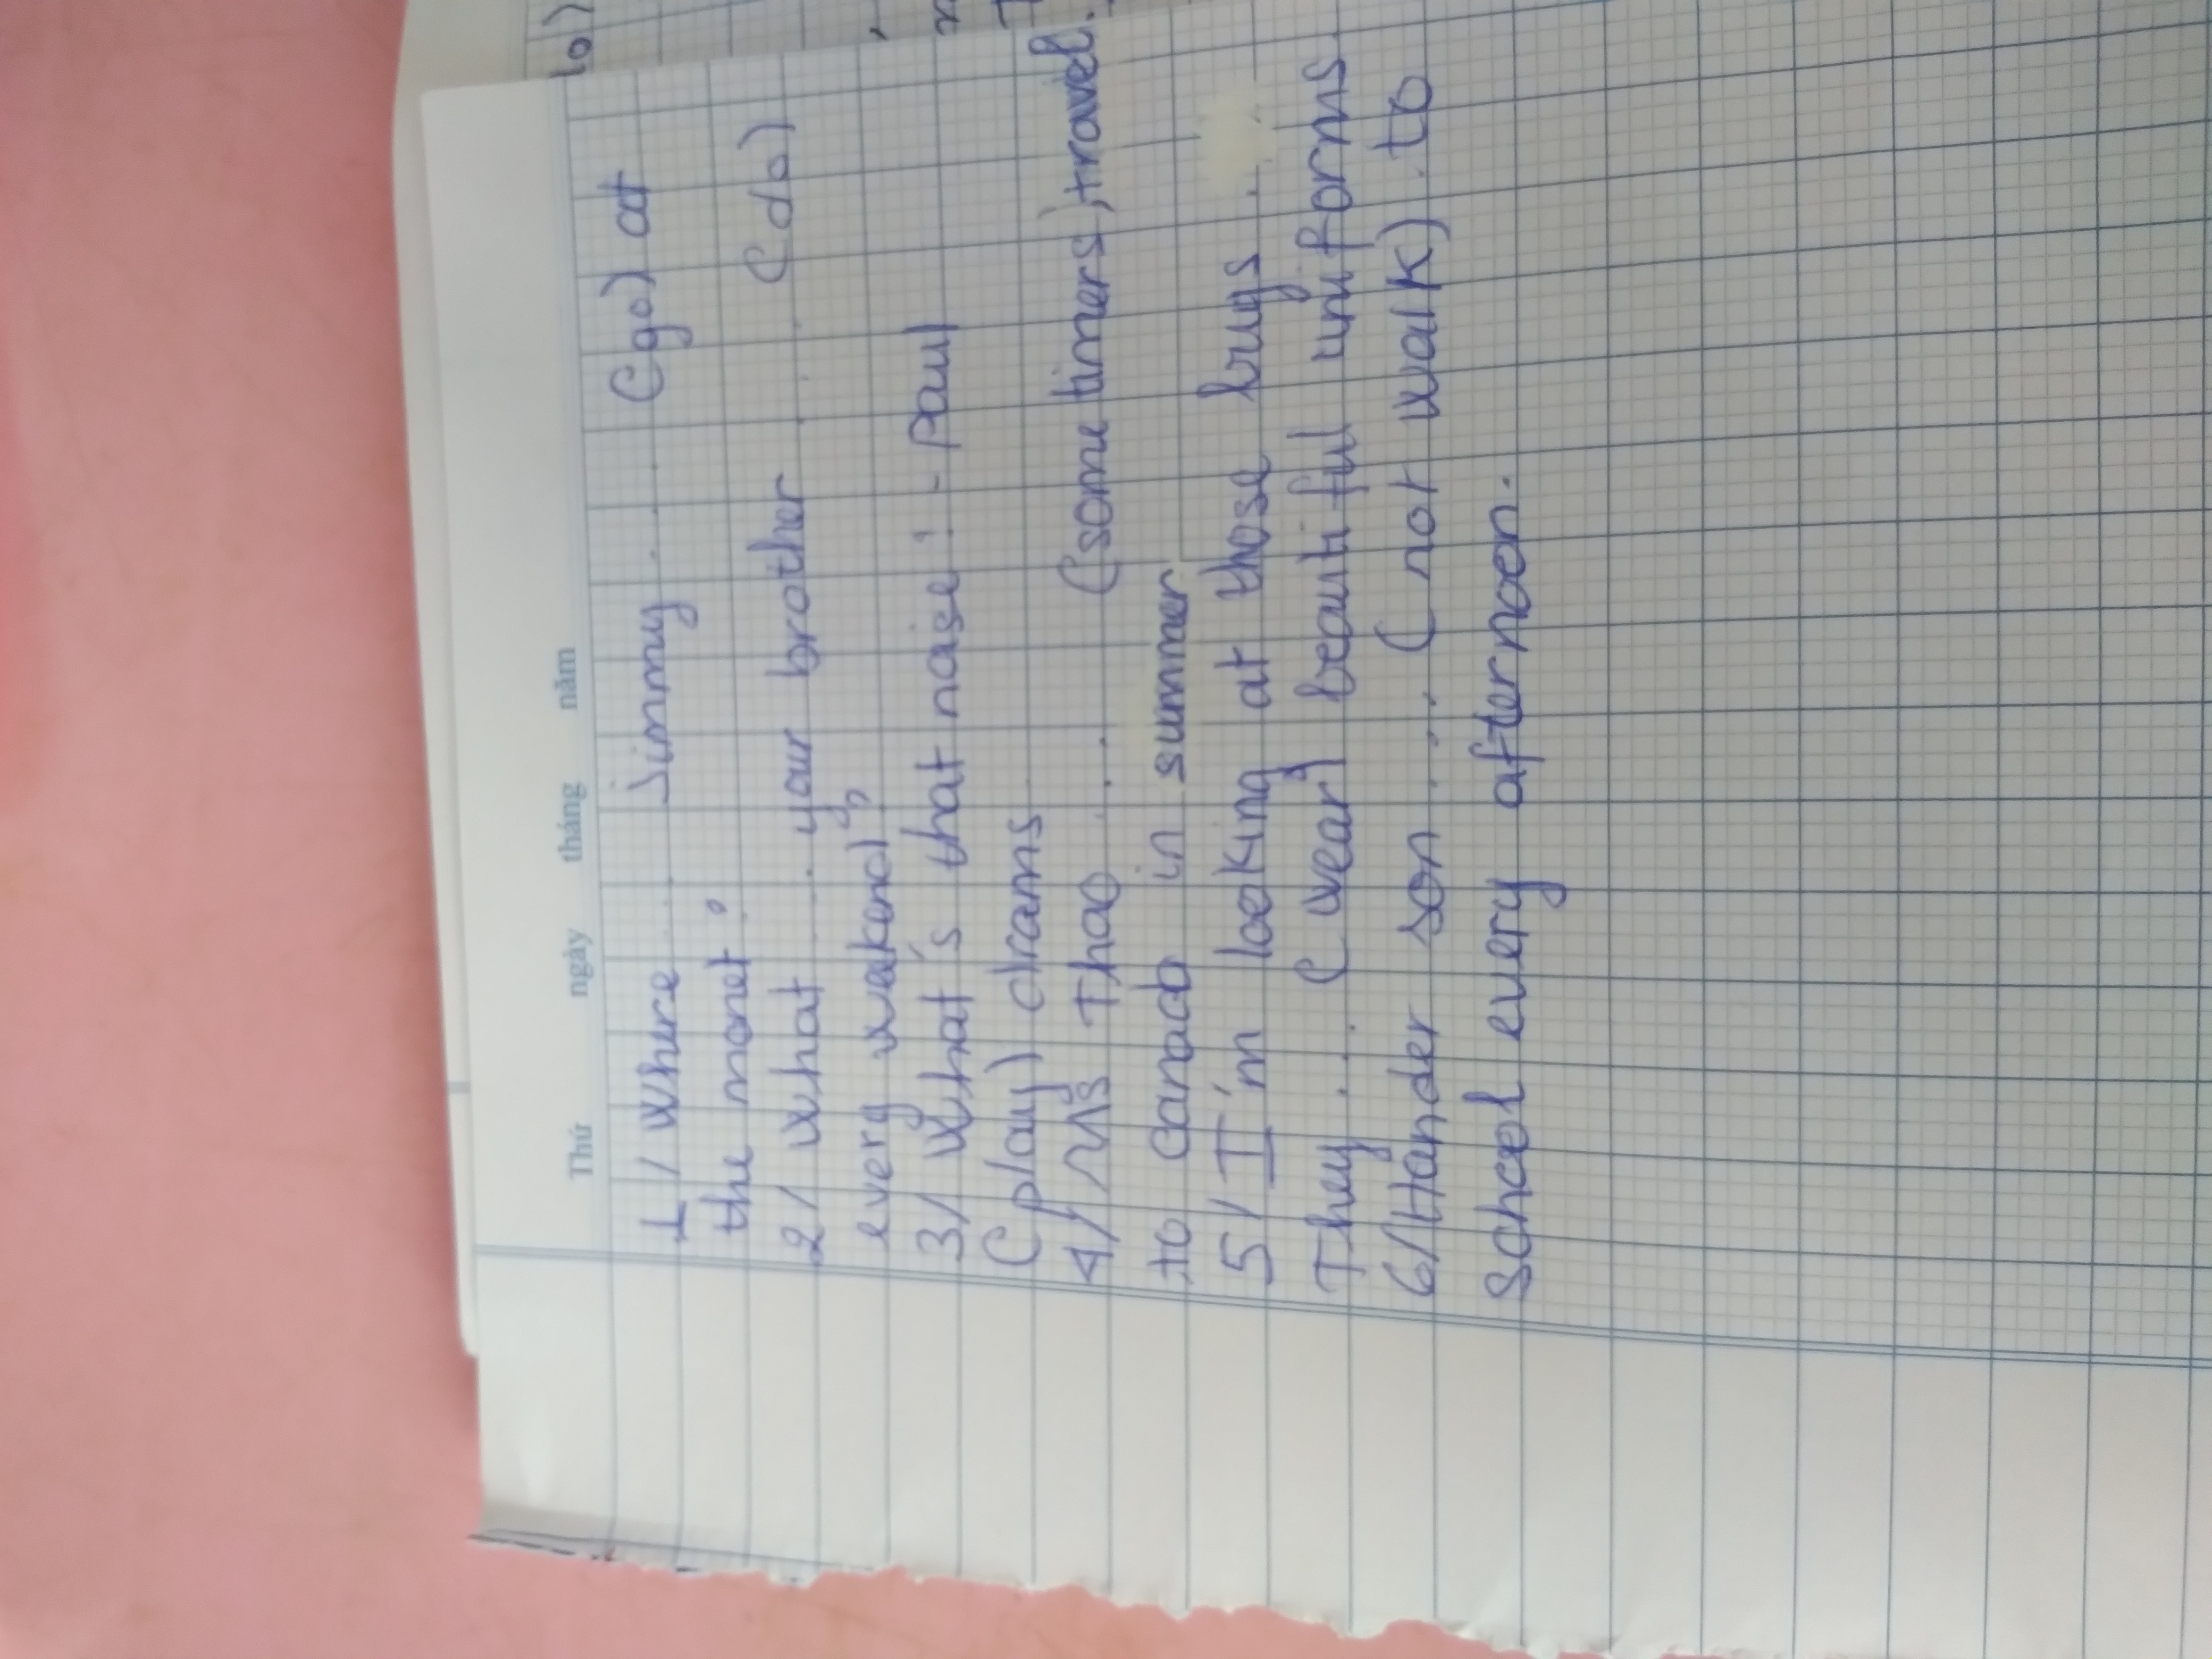 Thứ ngày tháng năm
1/ Where .... Jimmy .... (go) at
the monet?
2/ What .... your brother .... (do)
every weekend?
3/ What's that naise? - Paul
(play) drams
4/ Ms Thao .... (some timers, travel.
to canada in summer
5/ I'm looking at those buys.
They .... (wear) beautiful uniforms
6/ Hander son .... (not walk) to
School every afternoon.